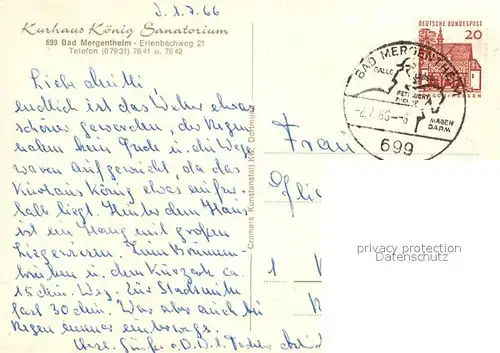 d. 1.7.66
Kurhaus König Sanatorium
699 Bad Mergentheim - Erlenbachweg 21
Telefon (07931) 7641 u. 7642
Liebe Mutti
endlich ist das Wetter etwas
schöner geworden, der Regen
nahm kein
waren aufgeweicht, da das
Kurhaus König etwas außer-
halb liegt. Hinter dem Haus
ist ein Hang mit großen
Liegewiesen. Zum Brunnen-
trinken u. dem Kurzark ca.
15 Min. Weg. Zur Stadtmitte
fast 30 Min. War aber auch bei
Regen immer unterwegs.
Herzl. Grüße
Cramers Kunstanstalt KG Dortmund
DEUTSCHE BUNDESPOST
20
BAD MERGENTHEIM
GALLE
MAGEN
DARM
699
Frau
privacy protection
watermark